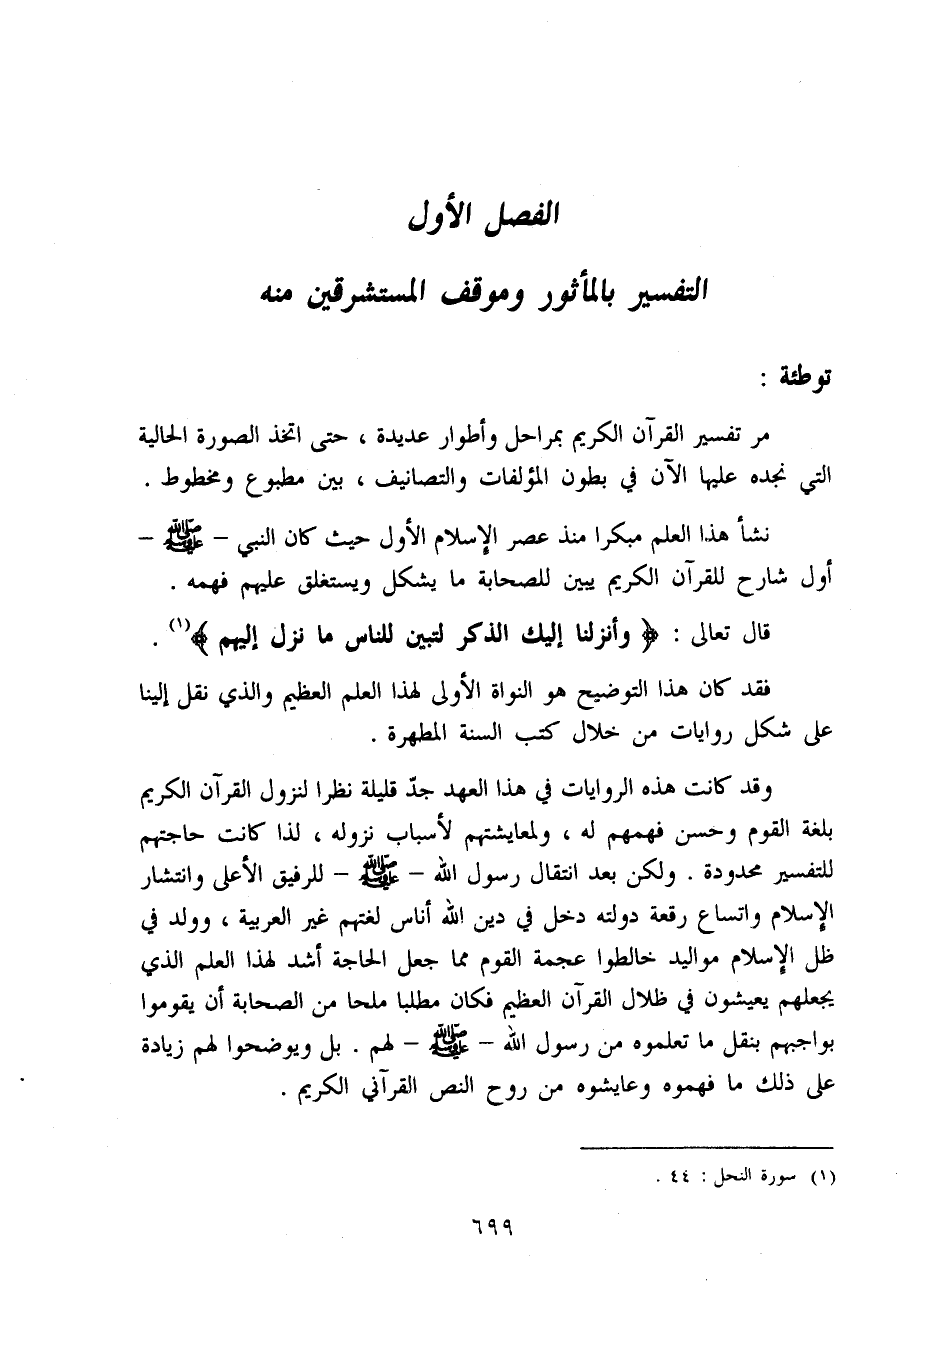 الفصل الأول
التفسير بالمأثور وموقف المستشرقين منه
توطئة :
مر تفسير القرآن الكريم بمراحل وأطوار عديدة ، حتى اتخذ الصورة الحالية
التي نجده عليها الآن في بطون المؤلفات والتصانيف ، بين مطبوع ومخطوط .
نشأ هذا العلم مبكرا منذ عصر الإسلام الأول حيث كان النبي – ﷺ –
أول شارح للقرآن الكريم يبين للصحابة ما يشكل ويستغلق عليهم فهمه .
قال تعالى : ﴿ وأنزلنا إليك الذكر لتبين للناس ما نزل إليهم ﴾(١) .
فقد كان هذا التوضيح هو النواة الأولى لهذا العلم العظيم والذي نقل إلينا
على شكل روايات من خلال كتب السنة المطهرة .
وقد كانت هذه الروايات في هذا العهد جدّ قليلة نظرا لنزول القرآن الكريم
بلغة القوم وحسن فهمهم له ، ولمعايشتهم لأسباب نزوله ، لذا كانت حاجتهم
للتفسير محدودة . ولكن بعد انتقال رسول الله – ﷺ – للرفيق الأعلى وانتشار
الإسلام واتساع رقعة دولته دخل في دين الله أناس لغتهم غير العربية ، وولد في
ظل الإسلام مواليد خالطوا عجمة القوم مما جعل الحاجة أشد لهذا العلم الذي
يجعلهم يعيشون في ظلال القرآن العظيم فكان مطلبا ملحا من الصحابة أن يقوموا
بواجبهم بنقل ما تعلموه من رسول الله – ﷺ – لهم . بل ويوضحوا لهم زيادة
على ذلك ما فهموه وعايشوه من روح النص القرآني الكريم .
(١) سورة النحل : ٤٤ .
٦٩٩